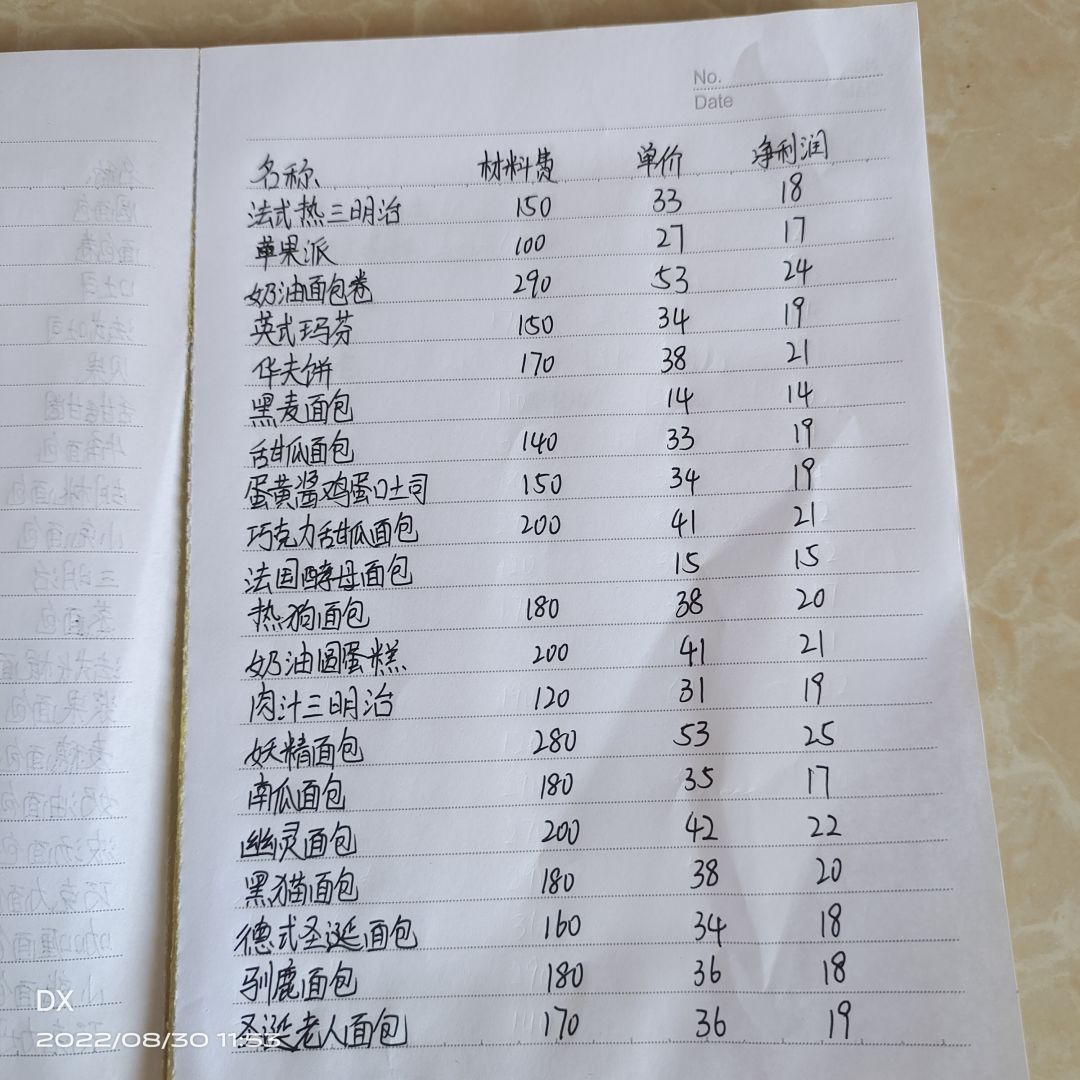 No.
Date
名称 材料费 单价 净利润
法式热三明治 150 33 18
苹果派 100 27 17
奶油面包卷 290 53 24
英式玛芬 150 34 19
华夫饼 170 38 21
黑麦面包 14 14
甜瓜面包 140 33 19
蛋黄酱鸡蛋吐司 150 34 19
巧克力甜瓜面包 200 41 21
法国酵母面包 15 15
热狗面包 180 38 20
奶油圆蛋糕 200 41 21
肉汁三明治 120 31 19
妖精面包 280 53 25
南瓜面包 180 35 17
幽灵面包 200 42 22
黑猫面包 180 38 20
德式圣诞面包 160 34 18
驯鹿面包 180 36 18
圣诞老人面包 170 36 19
DX
2022/08/30 11:53